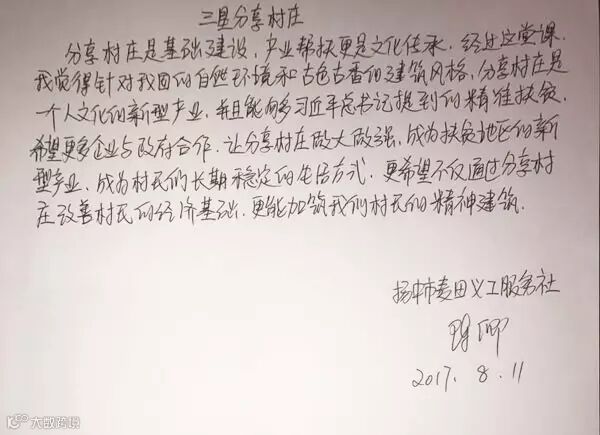 三星分享村庄
分享村庄是基础建设，产业帮扶更是文化传承，经过这堂课，
我觉得针对我国的自然环境和古色古香的建筑风格，分享村庄是
一个人文化的新型产业，并且能向习近平总书记提到的精准扶贫，
希望更多企业与政府合作，让分享村庄做大做强，成为扶贫地区的新
型产业，成为村民的长期稳定的生活方式，更希望不仅通过分享村
庄改善村民的经济基础，更能加筑我们村民的精神建筑。
扬中市麦田义工服务社
2017.8.11
大数跨境